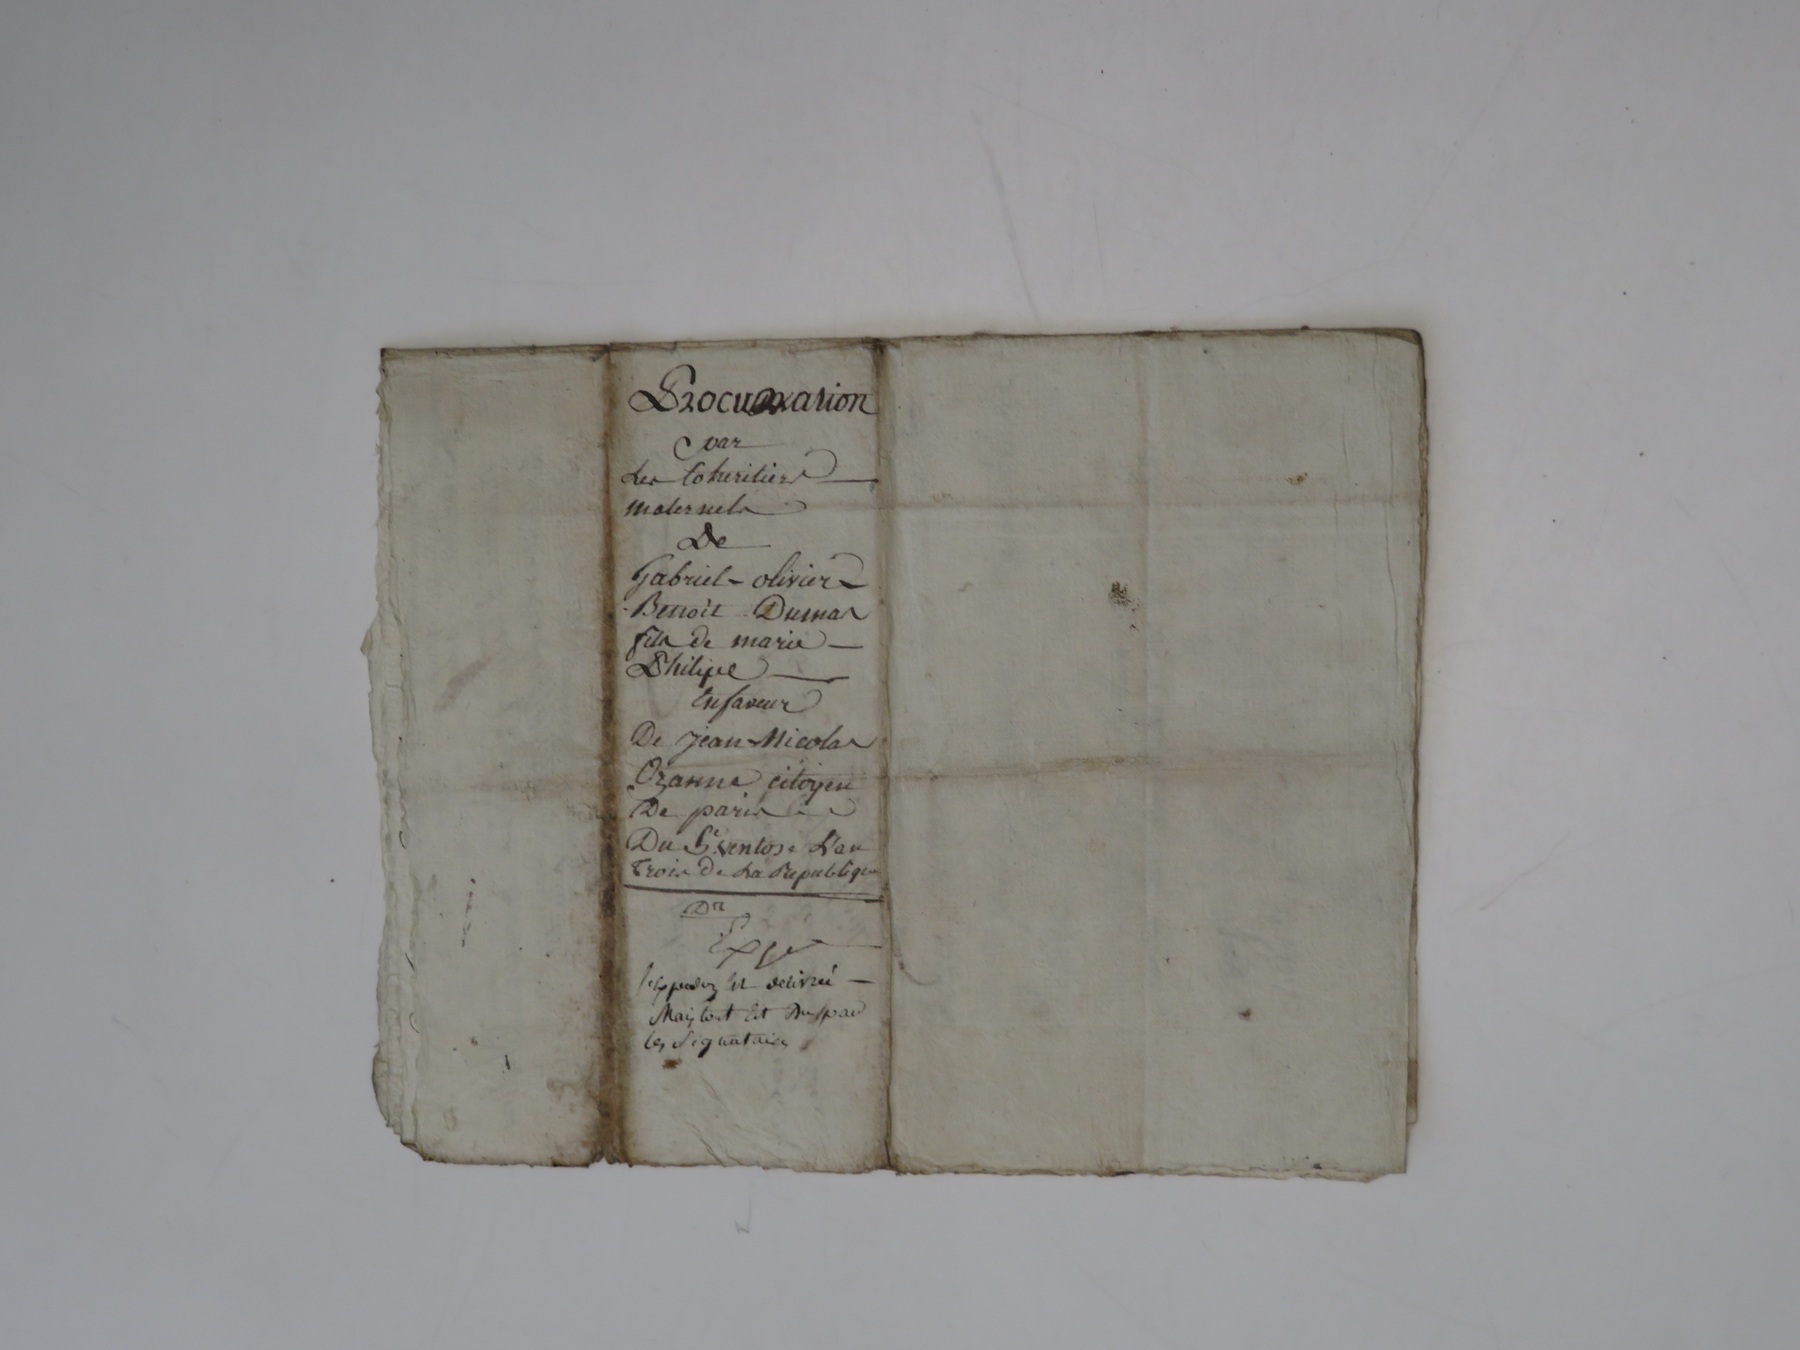 Procuration
par
Les Coheritiers
maternels
De
Gabriel - olivier
Benoît Dumas
fils de marie
Philipe
En faveur
De jean Nicolas
Ozanne citoyen
De paris
Du ventose L'an
Trois de La Republique
Expe
Et delivré
Mais tout Est Du par
les Signataires